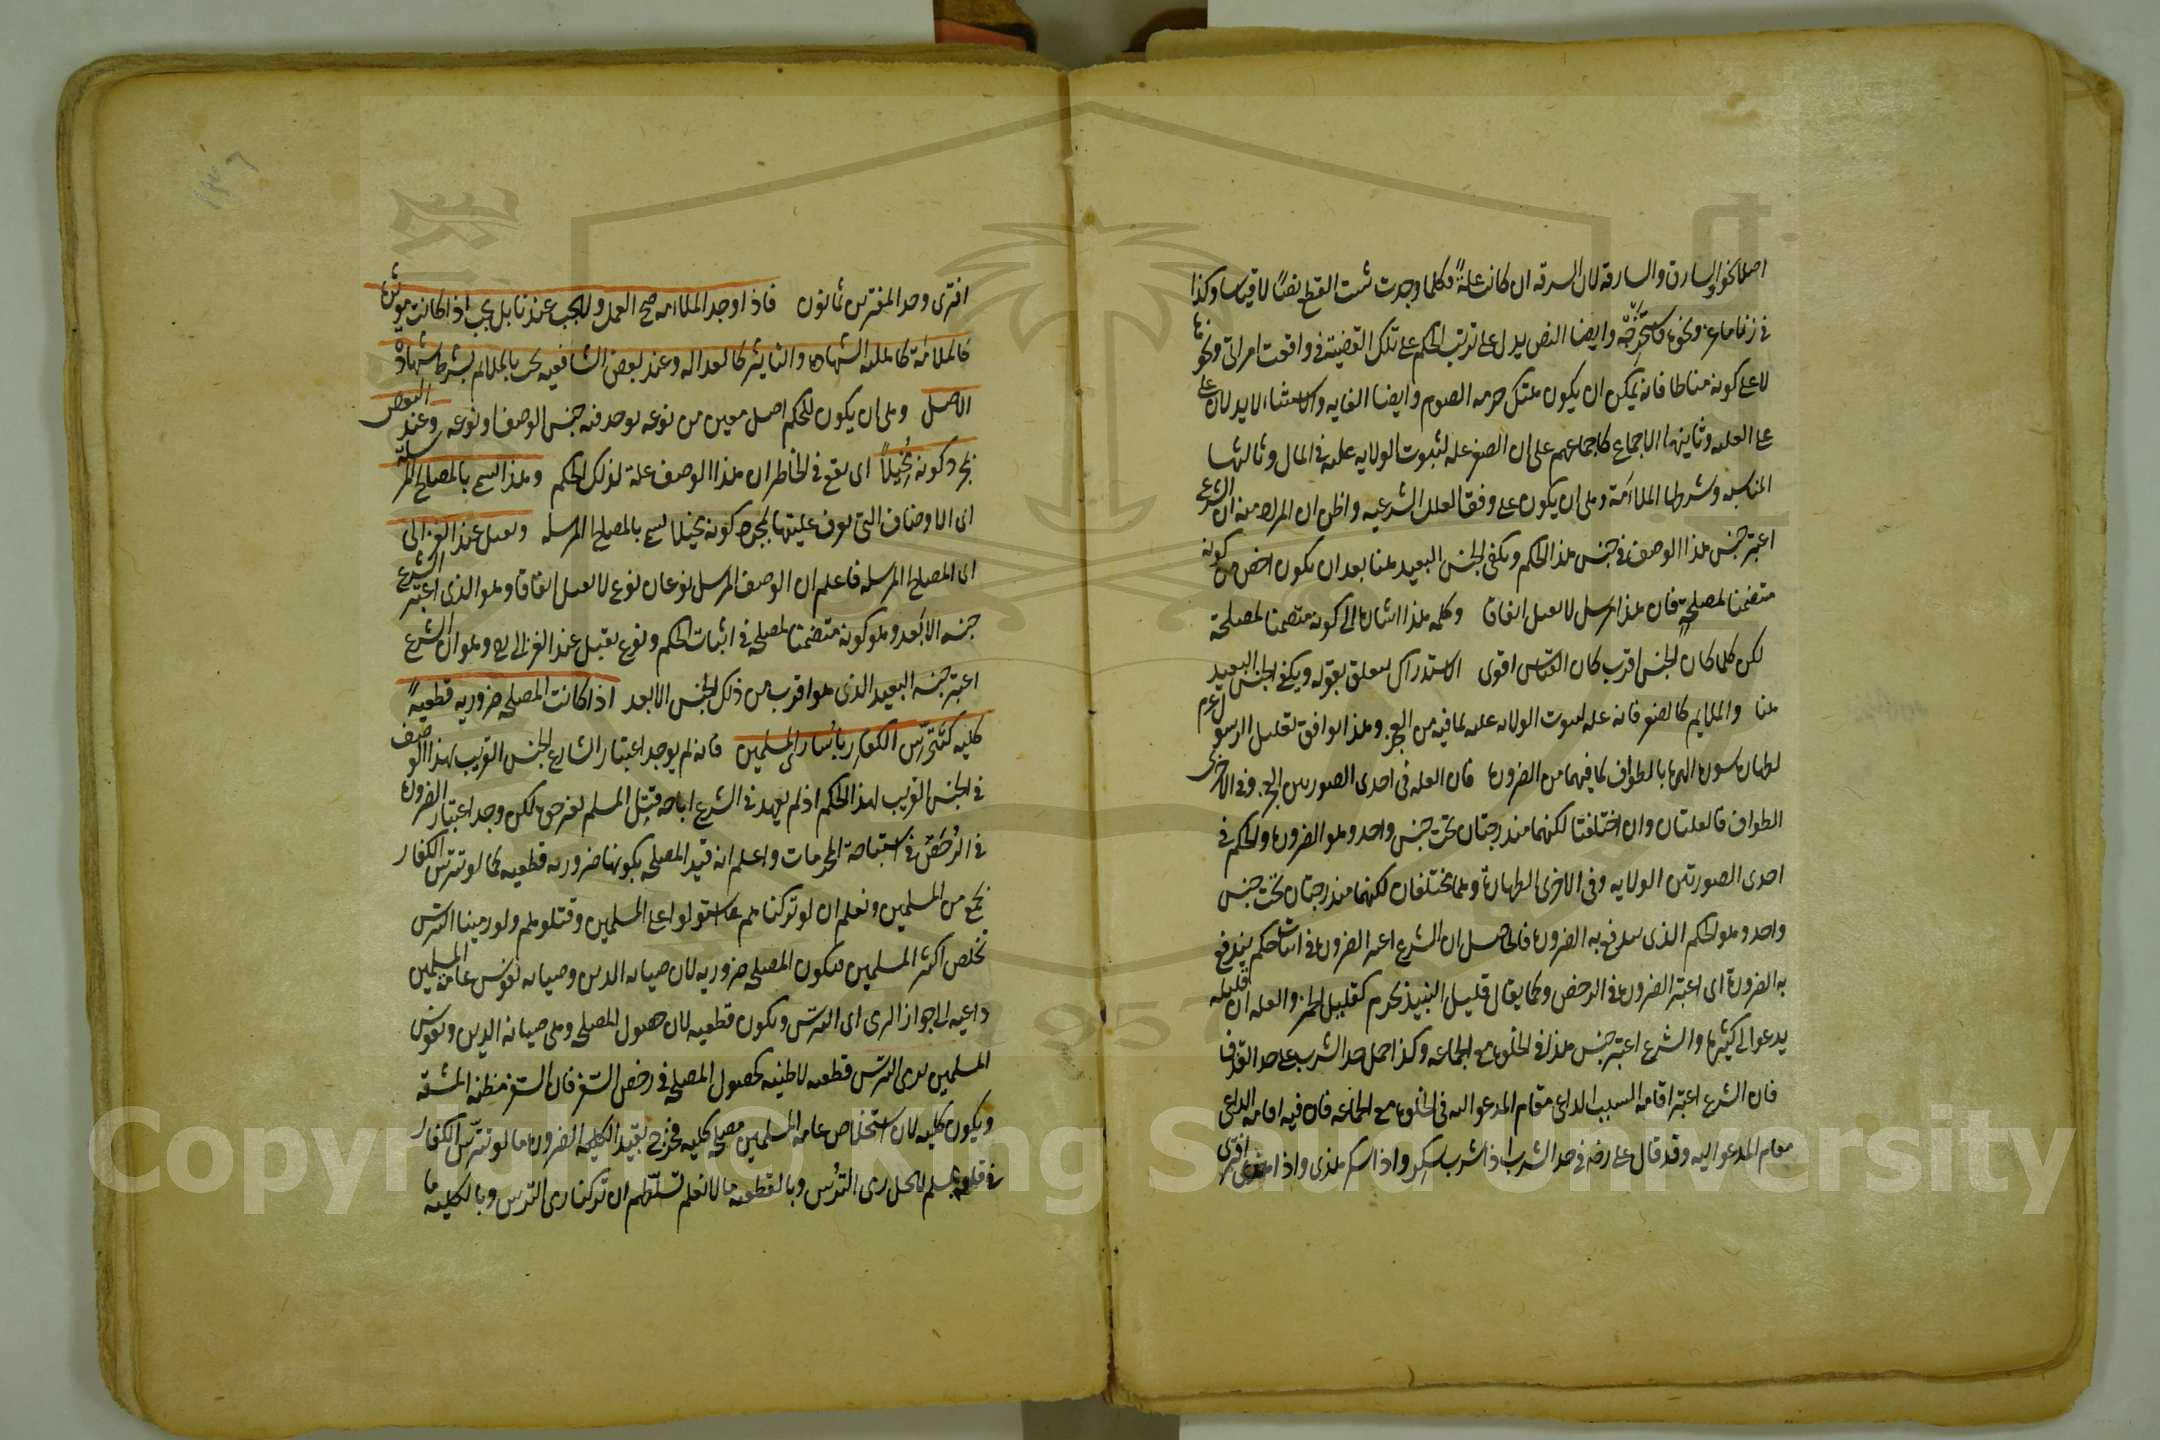 اصلا نحو السارق والسارقة لان السرقة ان كانت علةً فكلما وجدت ثبت القطع نصًا لا قياسا وكذا
في زنا ماعز ونحوه فاستخرجه وايضا النص يدل على ترتب الحكم على تلك القضية في واقعت امراتي ونحوها
لا على كونه مناطا فانه يمكن ان يكون هتك حرمه الصوم وايضا الغايه والاستثناء لا يدلان على
على العليه وثانيتها الاجماع كاجماعهم على ان الصغر علة لثبوت الولايه عليه في المال وثالثها
المناسبه وشرطها الملاءمة وهى ان يكون على وفق العلل الشرعيه واظن ان المراد منه ان الشرع
اعتبر جنس هذا الوصف في جنس هذا الحكم ويكفى الجنس البعيد هنا بعد ان يكون اخص من كونه
متضمنا لمصلحةٍ فان هذا مرسل لا يقبل اتفاقا وكلمه هذا اشارة الى كونه متضمنا لمصلحة
لكن كلما كان الجنس اقرب كان القياس اقوى الاستدراك يتعلق بقوله ويكفى الجنس البعيد
هنا والملايم كالصغر فانه علة لثبوت الولاية عليه لما فيه من العجز وهذا يوافق تعليل الرسول عم
لطهارة سور الهرة بالطواف لما فيهما من الضرورة فان العلة في احدى الصورتين العجز وفي الاخرى
الطواف فالعلتان وان اختلفتا لكنهما مندرجتان تحت جنس واحد وهو الضرورة والحكم في
احدى الصورتين الولايه وفي الاخرى الطهارة وهما مختلفان لكنهما مندرجتان تحت جنس
واحد وهو الحكم الذى يندفع به الضرورة فالحاصل ان الشرع اعتبر الضرورة في اثبات حكم يندفع
به الضرورة اى اعتبر الضرورة في الرخص وكما يقال قليل النبيذ يحرم كقليل الخمر والعلة ان قليله
يدعوا الى كثيرة والشرع اعتبر جنس هذا في الخلوة مع الجماعه وكذا حمل حد الشرب على حد القذف
فان الشرع اعتبر اقامه السبب الداعى مقام المدعو اليه في الخلوة مع الجماعه فان فيه اقامة الداعى
مقام المدعو اليه وقد قال على رضه في حد الشرب اذا شرب سكر واذا سكر هذى واذا هذى افترى
افترى وحد المفترين ثمانون فاذا وجد الملاءمه صح العمل ولا يجب عندنا بل يجب اذا كانت مؤثرة
فالملاءمة كاهلية الشهادة والتاثير كالعدالة وعند بعض الشافعيه يجب بالملايم بشرط شهادة
الاصل وهى ان يكون للحكم اصل معين من نوعه يوجد فيه جنس الوصف او نوعه وعند البعض
بمجرد كونه مُخيلًا اى يقع في الخاطر ان هذا الوصف علة لذلك الحكم وهذا يسمى بالمصالح المرسلة
اى الاوصاف التى يعرف عليتها بمجرد كونه مخيلا تسمى بالمصالح المرسله وتقبل عند الغزالى
اى المصالح المرسله فاعلم ان الوصف المرسل نوعان نوع لا يقبل اتفاقا وهو الذى اعتبر الشرع
جنسه الابَعد وهو كونه متضمنا لمصلحه في اثبات الحكم ونوع يقبل عند الغزالى وهو ان الشرع
اعتبر جنسه البعيد الذى هو اقرب من ذلك الجنس الابعد اذا كانت المصلحه ضروريه قطعيةً
كليه كتَتَرّس الكفار باسارى المسلمين فانه لم يوجد اعتبار الشارع الجنس القريب لهذا الوصف
في الجنس القريب لهذا الحكم اذ لم يعهد في الشرع اباحه قتل المسلم بغير حق لكن وجد اعتبار الضرورة
في الرُخَص في استباحة المحرمات واعلم انه قيد المصلحه بكونها ضروريه قطعيه كما لو تترس الكفار
بجمع من المسلمين ونعلم ان لو تركناهم استولوا على المسلمين وقتلوهم ولو رمينا الترس
يخلص اكثر المسلمين فيكون المصلحه ضروريه لان صيانه الدين وصيانه نفوس عامة المسلمين
داعيه الى جواز الرمى الى الترس ويكون قطعيه لان حصول المصلحه وهى صيانة الدين ونفوس
المسلمين برمى الترس قطعيه لا ظنيه كحصول المصلحه في رخص السفر فان السفر مظنه المشقه
ويكون كليه لان استخلاص عامه المسلمين مصلحه كليه فخرج بقيد الضرورة ما لو تترس الكفار
في قلعه بمسلم لا يحل رمى الترُس وبالقطعيه ما لا نعلم تسلّطهم ان تركنا رمى الترس وبالكليه ما
Copyright © King Saud University
1957